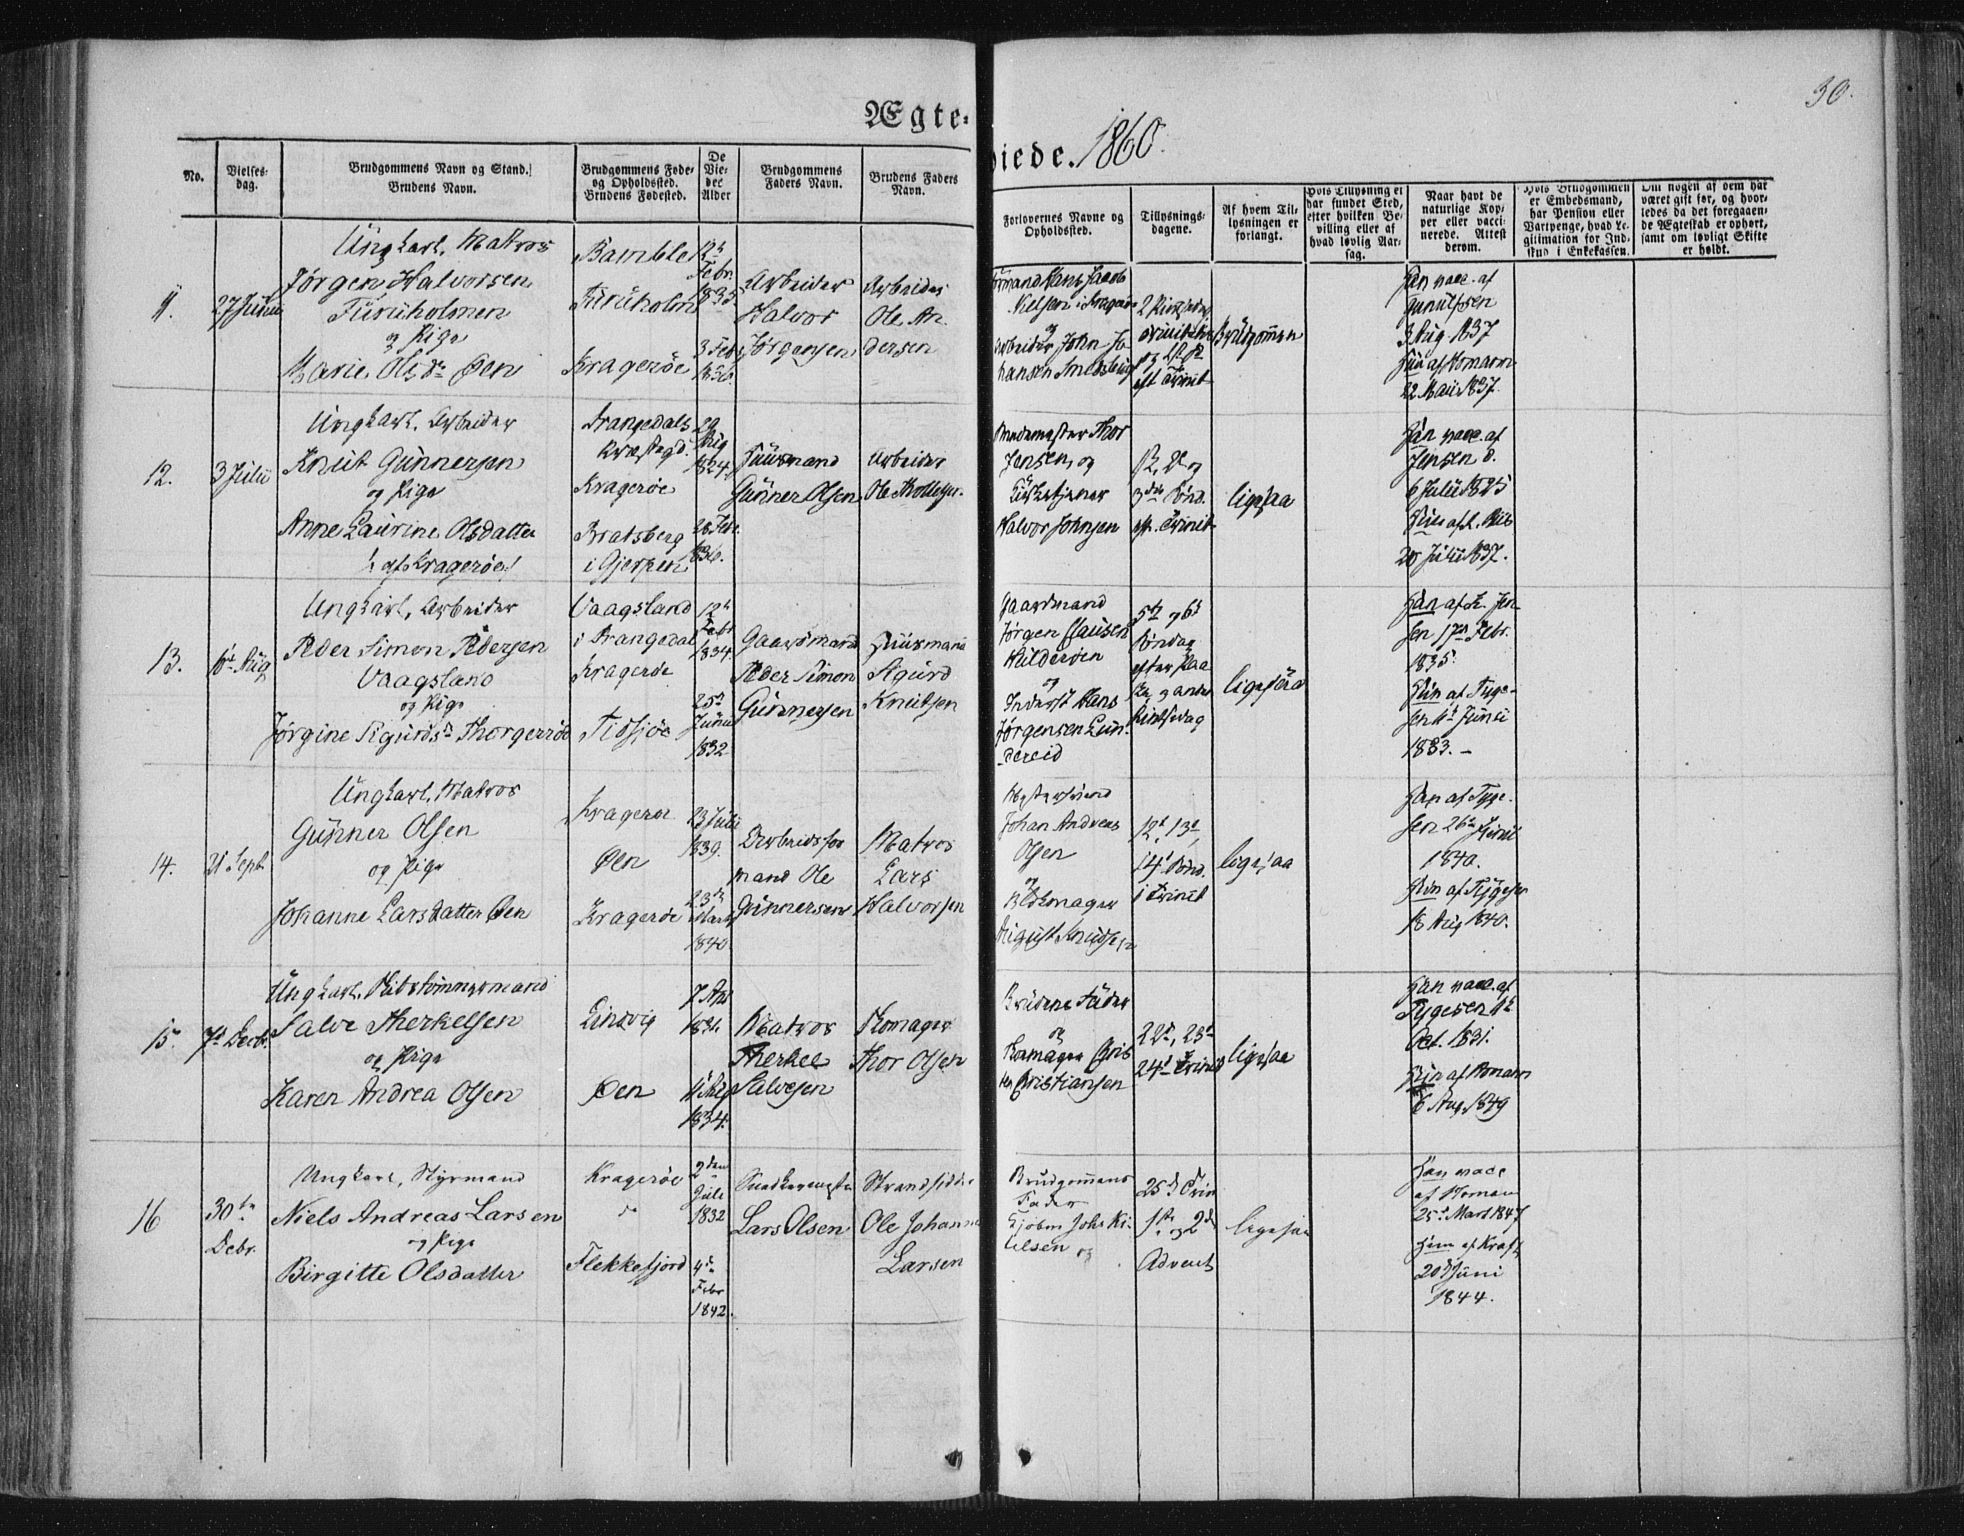 30.
Ægte-
viede. 1860.
No.
Vielses-
dag.
Brudgommens Navn og Stand.
Brudens Navn.
Brudgommens Føde-
og Opholdssted.
Brudens Fødested.
De
Vie-
des
Alder
Brudgommens
Faders Navn.
Brudens Faders
Navn.
Forlovernes Navne og
Opholdssted.
Tillysnings-
dagene.
Af hvem Til-
lysningen er
forlangt.
Hvis Tillysning ei
har fundet Sted,
efter hvilken Be-
villing eller af
hvad lovlig Aar-
sag.
Naar havt de
naturlige Kop-
per eller vacci-
nerede. Attest
derom.
Hvis Brudgommen
er Embedsmand,
har Pension eller
Vartpenge, hvad Le-
gitimation for Ind-
skud i Enkekassen.
Om nogen af dem har
været gift før, og hvor-
ledes da det foregaaen-
de Ægteskab er ophørt,
samt om lovligt Skifte
er holdt.
11.
27 Juni
Ungkarl, Matros
Jørgen Halvorsen
Furuholmen
og Pige
Marie Olsdr Øen
Bamble
Furuholm
Kragerøe
12te
Febr.
1835
3 Febr
1836.
Arbeider
Halvor
Jørgensen
Arbeider
Ole An-
dersen
Formand Hans Jacob
Nielsen i Kragerøe
og
Arbeider John Jo-
hansen
eft Trinit
Brudgommen
Han vacc. af
Gunulfsen
3 Aug 1837
Hun af Homann
22 Mai 1837.
12.
3 Juli
Ungkarl, Arbeider
Knut Gunnersen
og Pige
Anne Laurine Olsdatter
(af Kragerøe)
Drangedals
Præstegd.
Kragerøe
Bratsberg
i Gjerpen
29
Aug
1824.
28 Febr.
1836.
Huusmand
Gunner Olsen
Arbeider
Ole Mollesgr.
Thor
Jensen, og
Kirketjener
Halvor Johnsen
1ste, 2de og
3die Sønd.
eft. Trinit
ligesaa
Han vacc. af
Jensen d.
6 Juli 1825
Hun af L.
20 Juli 1837.
13.
16de Aug
Ungkarl, Arbeider
Peder Simon Pedersen
Vaagsland
og Pige
Jørgine Sigurdsdr Thorgersøe
Vaagsland
i Drangedal
Kragerøe
Tidsjøe
12te
Febr
1834.
25de
Juni
1832
Gaardmand
Peder Simon
Gunnersen
Huusmand
Sigurd
Knutsen
Gaardmand
Jørgen Clausen
Kilderøen
og
Inderst Hans
Jørgensen Lun-
dereid
5te og 6te
Søndag
efter Paa-
ske og anden
Pintsedag
ligesaa
Han af K. Jen-
sen 17de Febr.
1835.
Hun af Tyge-
sen Juni
1833. –
14.
21 Sept.
Ungkarl, Matros
Gunner Olsen
og Pige
Johanne Larsdatter Øen
Kragerøe
Øen
Kragerøe
23 Juli
1839.
23de
Marts
1840.
Arbeidsfor-
mand Ole
Gunnersen
Matros
Lars
Halvorsen
Johan Andreas
Olsen
og
Blokmager
August Knudsen
12te, 13de,
14de Sønd.
i Trinit
ligesaa
Han af Tyge-
sen 26de Juni
1840.
Hun af Tygesen
18 Aug 1840.
15.
7de Decbr.
Ungkarl, Skibstømmermand
Salve Therkelsen
og Pige
Karen Andrea Olsen
Lindvig
Øen
7 Apr
1831.
1834.
Matros
Therkel
Salvesen
Skomager
Thor Olsen
Brudens Fader
og
Skomager Chris-
ten Christiansen
22de, 23de
24de Trinit
ligesaa
Han vacc. af
Tygesen
Oct. 1831.
Hun af Homann
6 Aug. 1849
16
30te
Debr.
Ungkarl, Styrmand
Niels Andreas Larsen
og Pige
Birgitte Olsdatter
Kragerøe
do
Flekkefjord
2den
Juli
1832
4de
Febr
1842.
Snedkermester
Lars Olsen
Strandsidder
Ole Johannes
Larsen
Brudgommens
Fader
og
25de Trin
1ste og 2den
Advent
ligesaa
Han vacc
af Homan
25de Mart 1847
Hun af Kraft
20de Juni
1844.